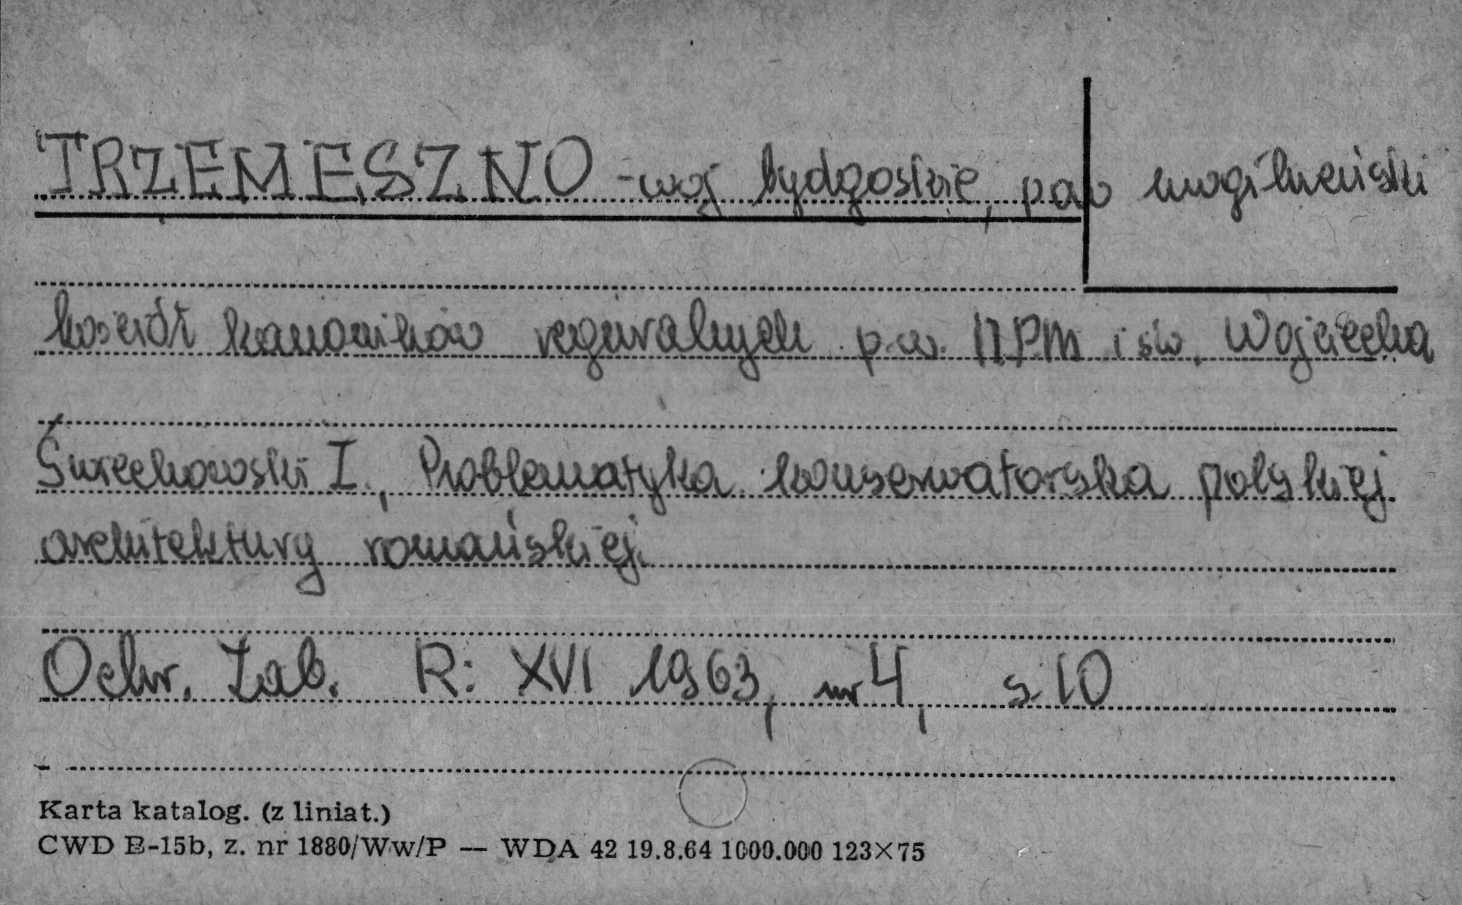 TRZEMESZNO - woj bydgoskie, pow mogileński
kościół kanoników regularnych p.w. NPM i św. Wojciecha
Świechowski Z., Problematyka konserwatorska polskiej
architektury romańskiej.
Ochr. Zab. R: XVI 1963, nr 4, s. 10
Karta katalog. (z liniat.)
CWD B-15b, z. nr 1880/Ww/P — WDA 42 19.8.64 1000.000 123×75